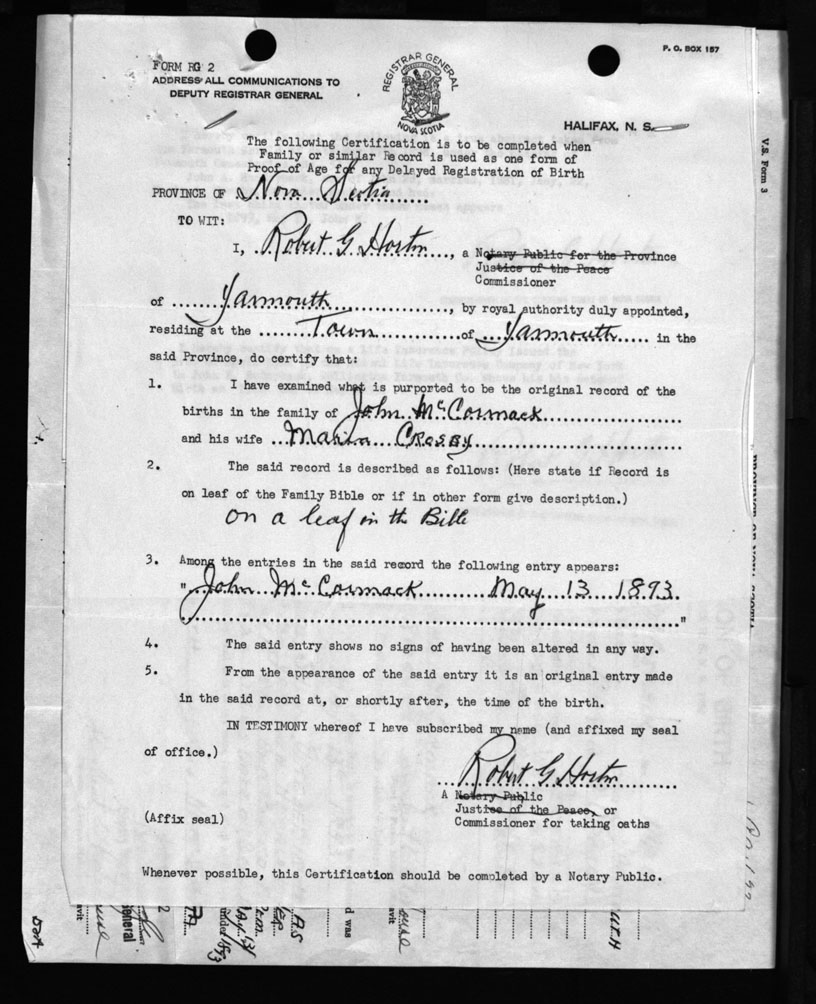 P. O. BOX 157
FORM RG 2
ADDRESS ALL COMMUNICATIONS TO
DEPUTY REGISTRAR GENERAL
REGISTRAR GENERAL
NOVA SCOTIA
HALIFAX, N. S.
V.S. Form 3
The following Certification is to be completed when
Family or similar Record is used as one form of
Proof of Age for any Delayed Registration of Birth
PROVINCE OF Nova Scotia
TO WIT:
I, Robert G. Horton, a Notary Public for the Province
Justice of the Peace
Commissioner
of Yarmouth, by royal authority duly appointed,
residing at the Town of Yarmouth in the
said Province, do certify that:
1. I have examined what is purported to be the original record of the
births in the family of John McCormack
and his wife Maria Crosby
2. The said record is described as follows: (Here state if Record is
on leaf of the Family Bible or if in other form give description.)
on a leaf in the Bible
3. Among the entries in the said record the following entry appears:
" John McCormack May 13 1893.
"
4. The said entry shows no signs of having been altered in any way.
5. From the appearance of the said entry it is an original entry made
in the said record at, or shortly after, the time of the birth.
IN TESTIMONY whereof I have subscribed my name (and affixed my seal
of office.)
Robert G Horton
A Notary Public
Justice of the Peace, or
(Affix seal) Commissioner for taking oaths
Whenever possible, this Certification should be completed by a Notary Public.
d was
General